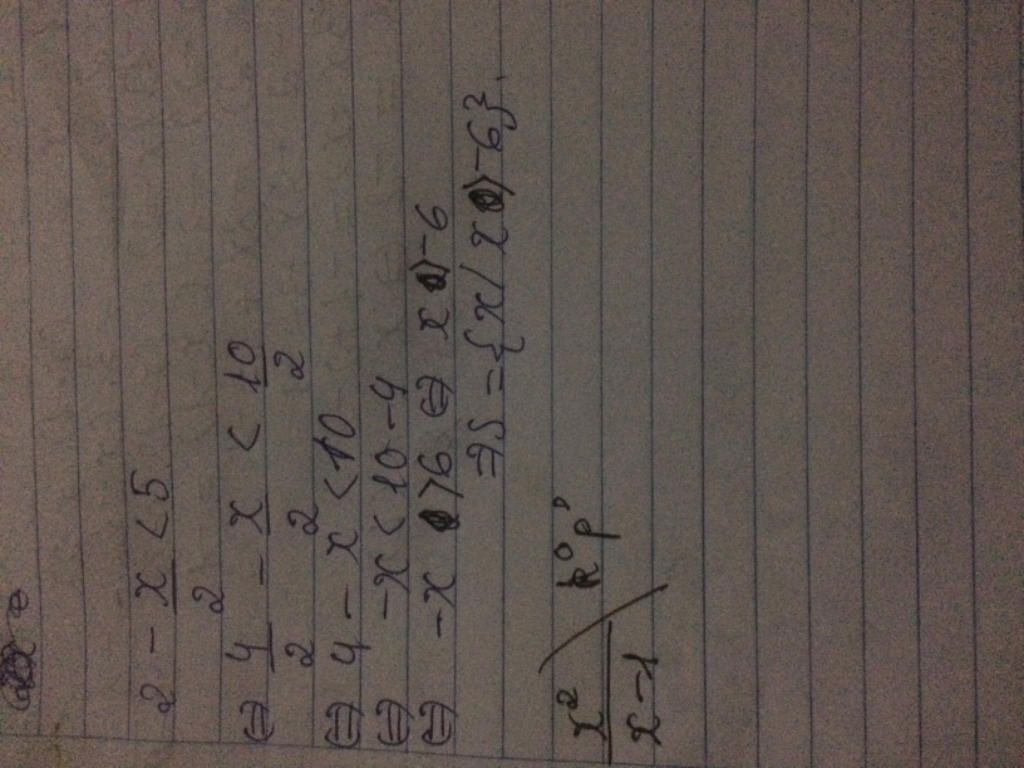 2 - x/2 < 5
⇔ 4/2 - x/2 < 10/2
⇔ 4 - x < 10
⇔ -x < 10 - 4
⇔ -x > 6 ⇔ x > -6
⇒ S = {x / x > -6}.
x²/x-1